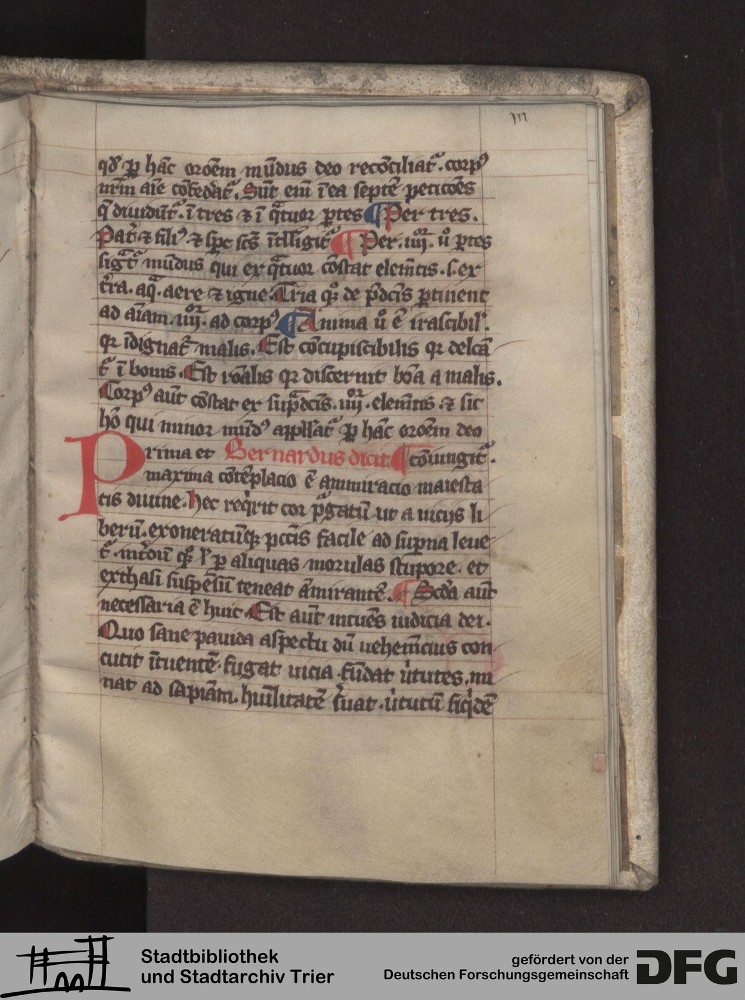 m
qd̄ p̱ hāc orōem mūdus deo recōciliat᷑. corpꝰ
nr̄m aīe cōfedat᷑. Sūt em̄ ī ea septē peticōes
q̄ diuidūt᷑. ī tres ⁊ ī qͣtuor ptes ¶ Per tres.
Pat᷑ ⁊ filiꝰ ⁊ sp̄c sc̄s ītlligit᷑ ¶ Per .iiii. ū ptes
sigt᷑ mūdus qui ex qͣtuor cōstat elem̄tis. s. ex
t᷑ra. aqͣ. aere ⁊ igne. Tria qꝫ de p̄dcīs ptinent
ad aīam .iiii. ad corpꝰ. ¶ Anima ū ē irascibil᷑.
qr īdignat᷑ malis. Est cōcupiscibilis qr delcā
t᷑ ī bonis. Est rōalis qr discernit bōa a malis.
Corpꝰ aūt cōstat ex sup̄dcīs .iiii. elem̄tis ⁊ sic
hō qui minor mūdꝰ appllat᷑ p̱ hāc orōem deo
Prima et Bernardus dicit ¶ cōiungit᷑.
maxima cōtēplacio ē ammiracio maiesta
tis diuine. hec req̄rit cor pͬgatū. ut a uicijs li
berū. exoneratūqꝫ pcc̄is facile ad sup̄na leue
t᷑. int᷑dū qꝫ ł p̱ aliquas morulas stupore. et
exthasi suspēsū teneat āmirantē. ¶ Scd̄a aūt
necessaria ē huic. Est aūt intuēs iudicia dei.
Quo sane pauida aspectu dū uehemēcius con
cutit ītuentē. fugat uicia. fūdat uͥtutes. ini
ciat ad sapīam. hūilitatē s᷑uat. uͥtutū siqͥdē
Stadtbibliothek
und Stadtarchiv Trier
gefördert von der
Deutschen Forschungsgemeinschaft
DFG